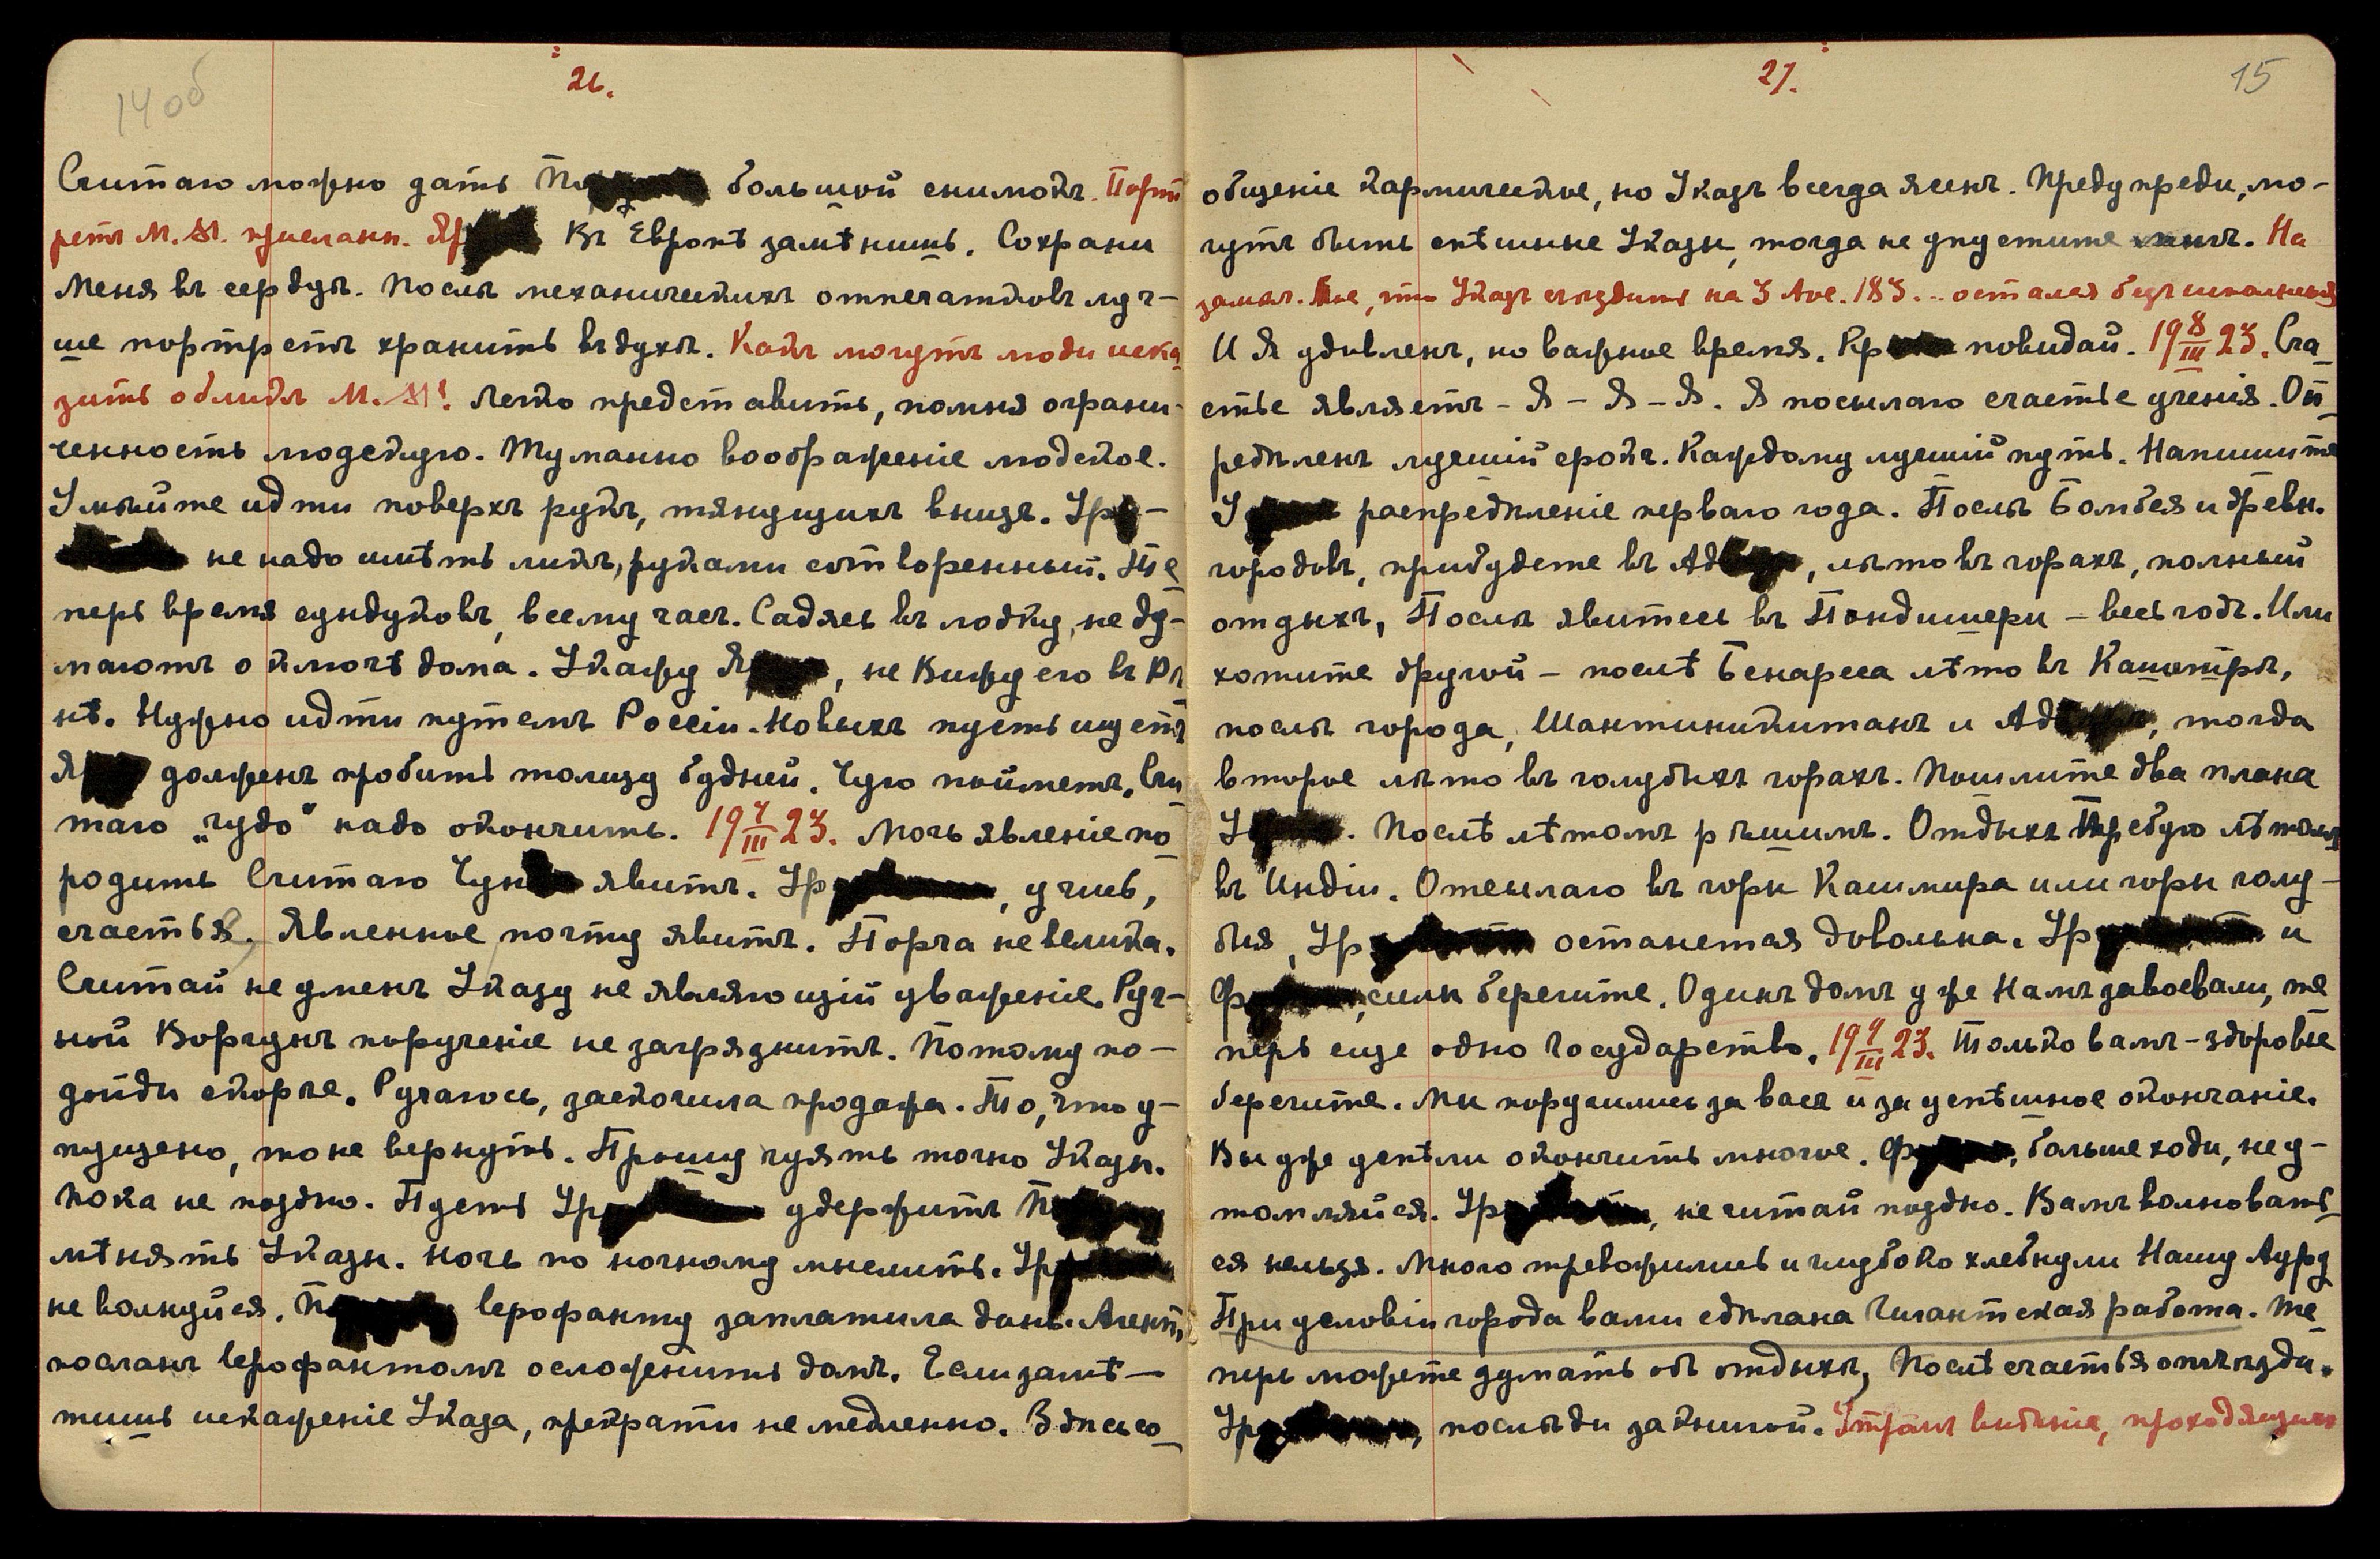 14 об
26.
Считаю можно дать По большой снимокъ. Порт
ретъ М. М. присланъ. Яр Въ Европѣ замѣнишь. Сохрани
Меня въ сердцѣ. Послѣ механическихъ отпечатковъ луч-
ше портретъ хранить въ духѣ. Какъ могутъ люди иска
зить обликъ М. М! Легко представить, помня ограни-
ченность людскую. Туманно воображеніе людское.
Умѣйте идти поверхъ рукъ, тянущихъ внизъ. Ур-
не надо имѣть ликъ, руками сотворенный. Те
перь время сундуковъ, всему часъ. Садясь въ лодку, не ду-
маютъ о ключѣ дома. Укажу Я, не Вижу его въ
нѣ. Нужно идти путемъ Россіи. Новыхъ пусть ищетъ
Я долженъ пробить толщу будней. Чую пойметъ, Счи
таю „чудо“ надо окончить. 19 7/III 23. Мочь явленіе по
родить Считаю Чун явитъ. Ур, учись,
счастья. Явленное почту явитъ. Порча не велика.
Считай не уменъ Указу не являющій уваженіе. Руч-
ной Ворчунъ порученіе не загрязнитъ. Потому по-
дойди скорѣе. Ручаюсь, заскочила продажа. То, что у-
пущено, то не вернуть. Прошу чуять точно Указы.
Пока не поздно. Пусть Ур удержитъ П
мѣнять Указы. Ночь по ночному мыслить. Ур
не волнуйся. П Іерофанту заплатила дань. Агентъ
посланъ Іерофантомъ осложнить домъ. Если замѣ-
тишь искаженіе Указа, прекрати немедленно. Здѣсь со
27.
15
общеніе кармическое, но Указъ всегда ясенъ. Предупреди, мо-
гутъ быть спѣшные Указы, тогда не упустите. На
замѣч. что Указъ съѣздить на 3 Ave. 183... остался безъ исполненія
И Я удивленъ, но важное время. Кр повидай. 19 8/III 23. Сча
стье являетъ - Я - Я - Я. Я посылаю счастье ученія. Оп
редѣленъ лучшій срокъ. Каждому лучшій путь. Напишите
У распредѣленіе перваго года. Послѣ Бомбея и древн.
городовъ, прибудете въ Ад, лѣто въ горахъ, полный
отдыхъ, Послѣ явитесь въ Пондишери - весь годъ. Или
хотите другой - послѣ Бенареса лѣто въ Кашмирѣ,
послѣ города, Шантиникитанъ и Ад, тогда
второе лѣто въ голубыхъ горахъ. Пошлите два плана
У. Послѣ лѣтомъ рѣшимъ. Отдыхъ Требую лѣтомъ
въ Индіи. Отсылаю въ горы Кашмира или горы голу-
быя, Ур останется довольна. Ур и
Ф, силы берегите. Одинъ домъ уже Намъ завоевали, те
перь еще одно Государство. 19 9/III 23. Только вамъ - здоровье
берегите. Мы поручились за васъ и за успѣшное окончаніе.
Вы уже успѣли окончить многое. Ф, больше ходи, не у-
томляйся. Ур, не читай поздно. Вамъ волновать-
ся нельзя. Много тревожились и глубоко хлебнули Нашу Ауру
При условіи города вами сдѣлана Гигантская работа. Те
перь можете думать объ отдыхѣ, Послѣ счастья отъѣзда.
Ур, послѣди за книгой. Утромъ видѣніе, проходящихъ